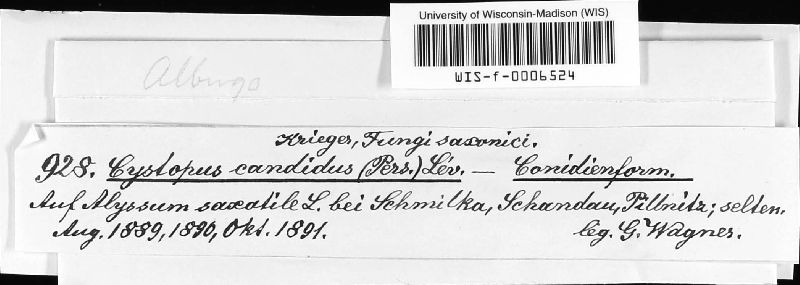 University of Wisconsin-Madison (WIS)
WIS-f-0006524
Albugo
Krieger, Fungi saxonici.
928. Cystopus candidus (Pers.) Lév. — Conidienform.
Auf Alyssum saxatile L. bei Schmilka, Schandau, Pillnitz; selten.
Aug. 1889, 1890, Okt. 1891. leg. G. Wagner.